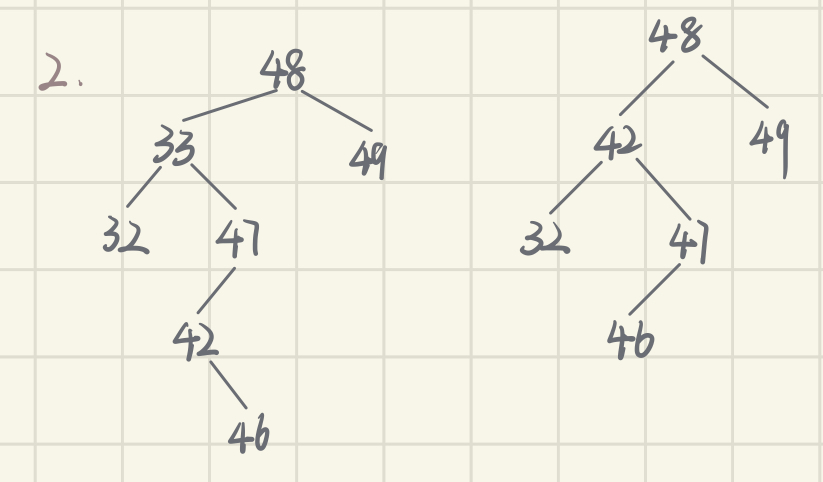 2.
48
33 49
32 47
42
46
48
42 49
32 47
46